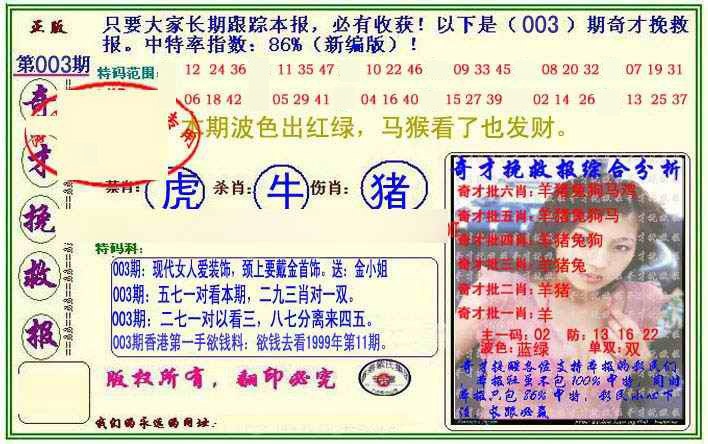 正版
只要大家长期跟踪本报，必有收获！以下是（003）期奇才挽救
报。中特率指数：86%（新编版）！
第003期
特码范围：
12 24 36 11 35 47 10 22 46 09 33 45 08 20 32 07 19 31
06 18 42 05 29 41 04 16 40 15 27 39 02 14 26 13 25 37
本期波色出红绿，马猴看了也发财。
奇才挽救报
禁肖：虎 杀肖：牛 伤肖：猪
特码科：
003期：现代女人爱装饰，颈上要戴金首饰。送：金小姐
003期：五七一对看本期，二九三肖对一双。
003期：二七一对以看三，八七分离来四五。
003期香港第一手欲钱料：欲钱去看1999年第11期。
版权所有，翻印必究
我们的永远的网址：
奇才挽救报综合分析
奇才批六肖：羊猪兔狗马鸡
奇才批五肖：羊猪兔狗马
奇才批四肖：羊猪兔狗
奇才批三肖：羊猪兔
奇才批二肖：羊猪
奇才批一肖：羊
主一码：02 防：13 16 22
波色：蓝绿 单双：双
奇才提醒各位支持本报的彩民们
本报虽不包100%中特，同时
本报只包86%中特，彩民小心下
注，长跟必赢